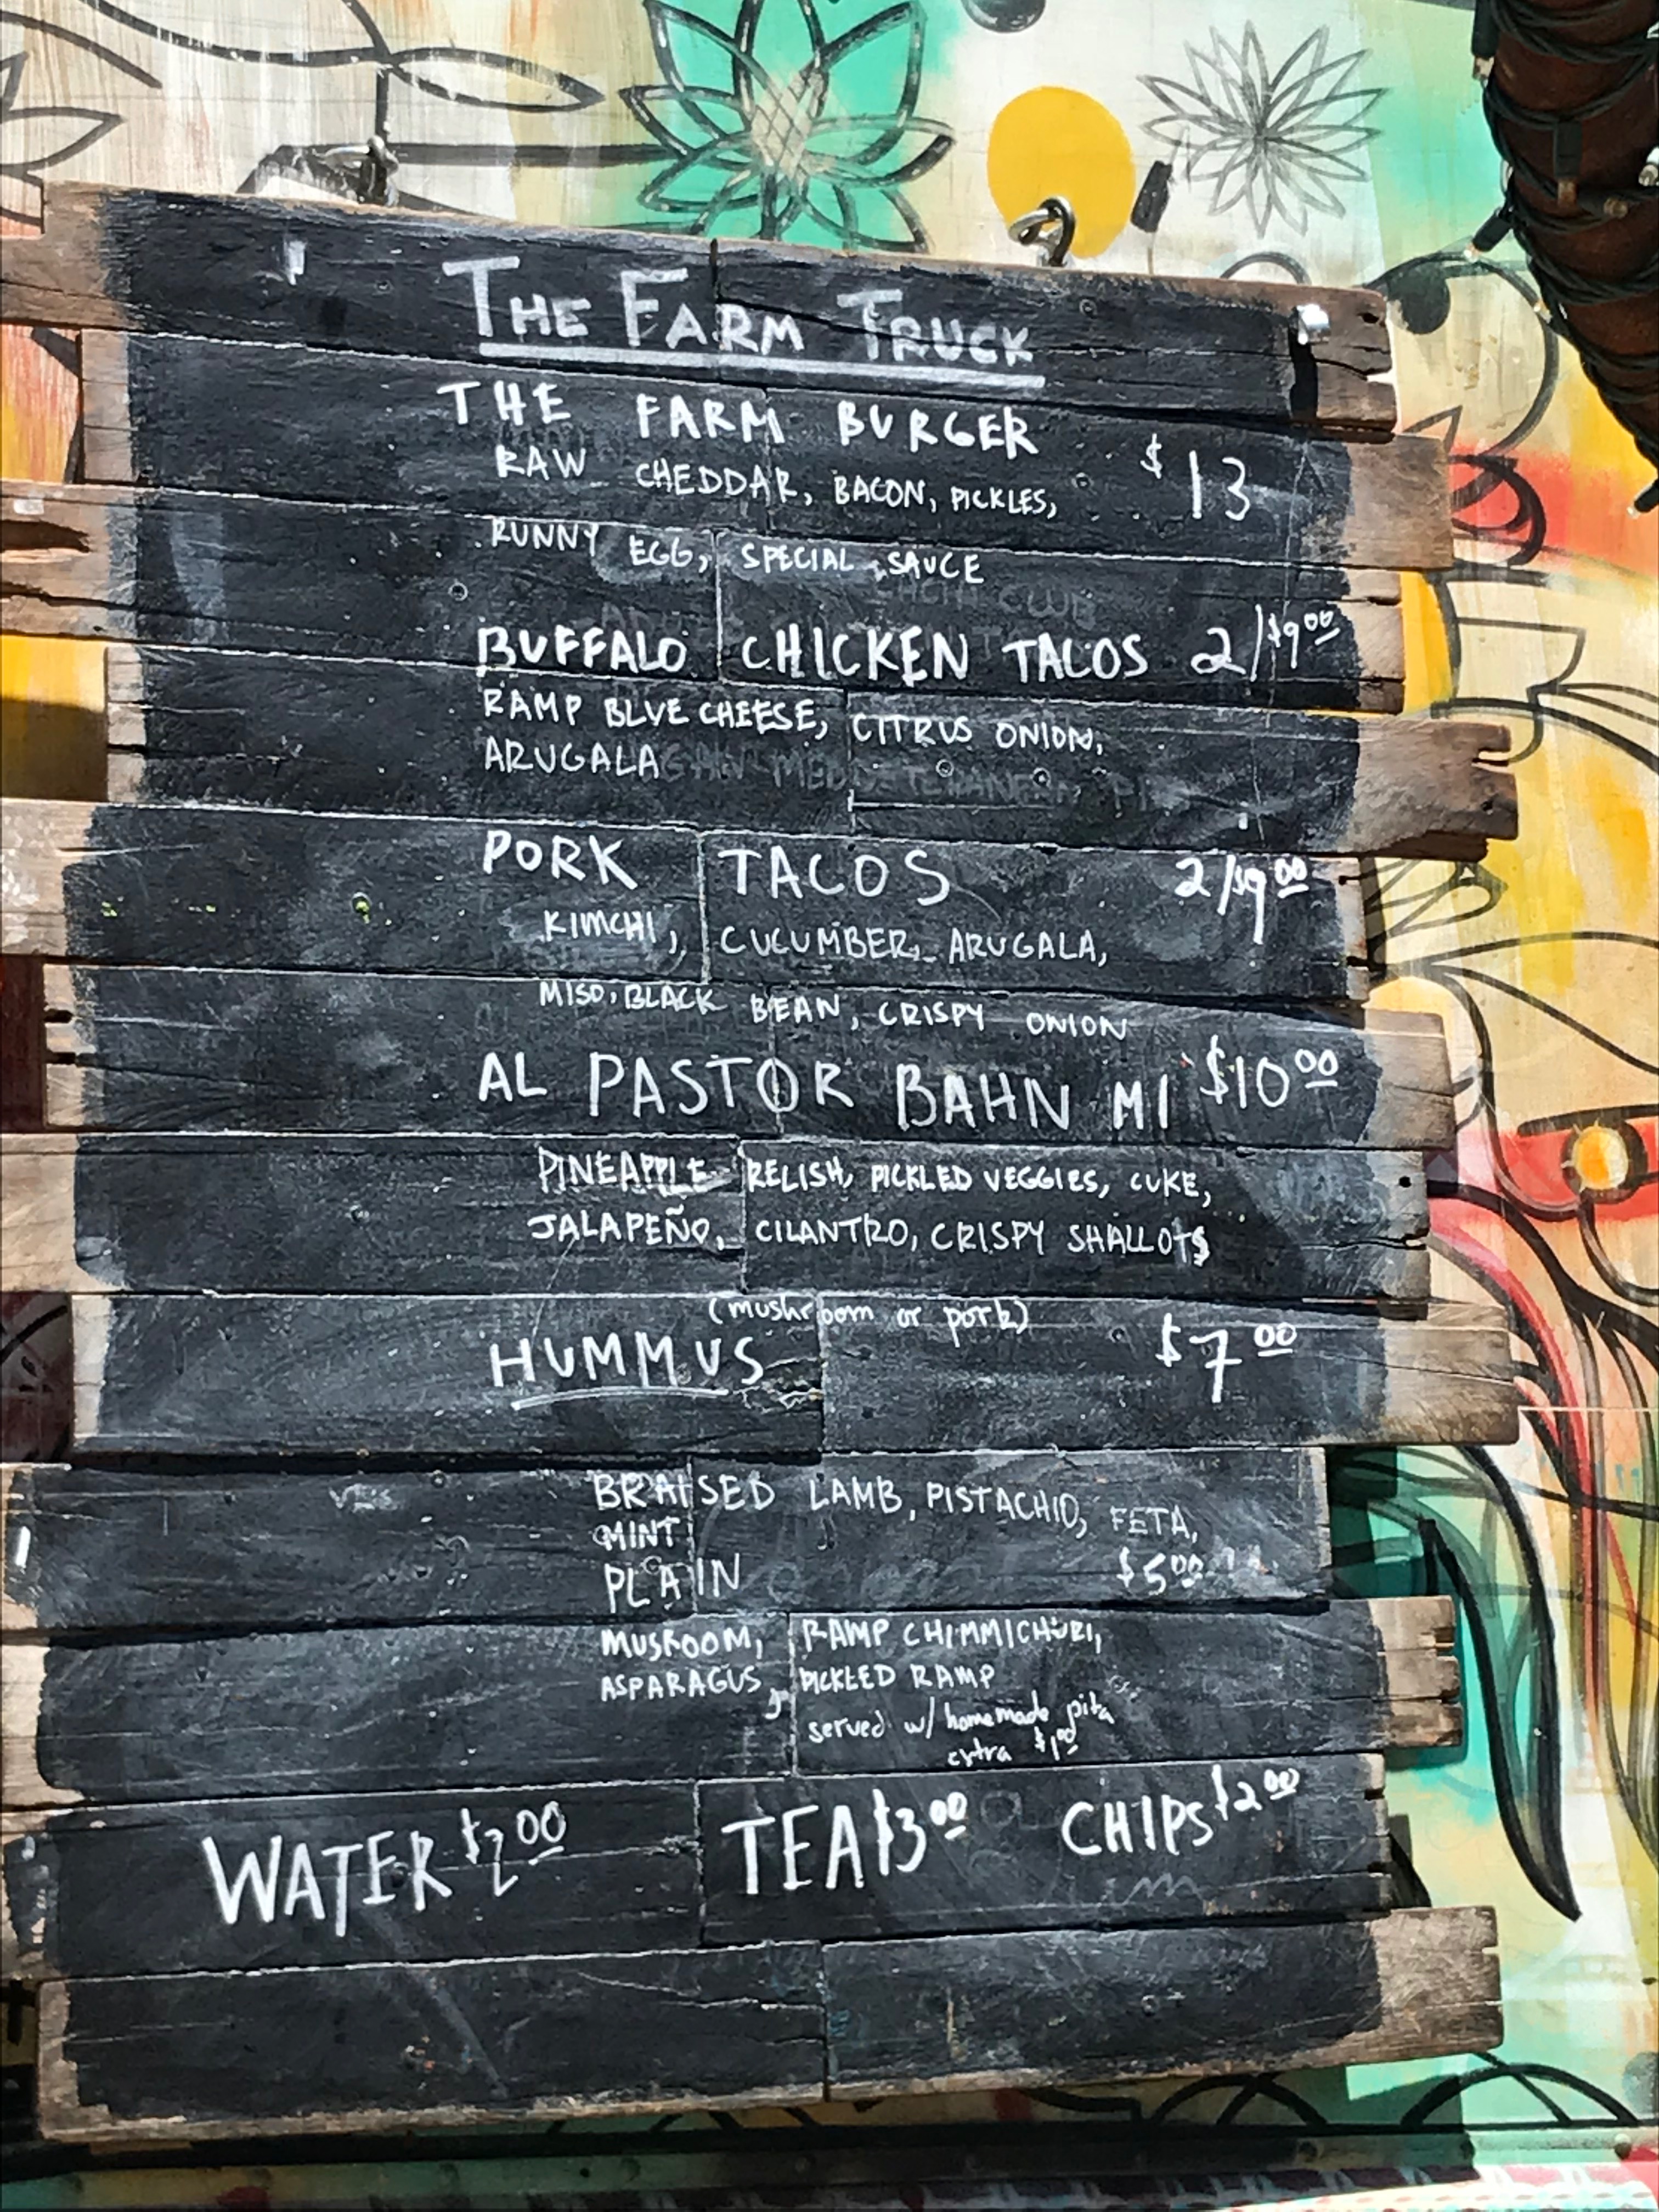 THE FARM TRUCK
THE FARM BURGER $13
RAW CHEDDAR, BACON, PICKLES,
RUNNY EGG, SPECIAL SAUCE
BUFFALO CHICKEN TACOS 2/$9.00
RAMP BLUE CHEESE, CITRUS ONION,
ARUGALA
PORK TACOS 2/$9.00
KIMCHI, CUCUMBER, ARUGALA,
MISO, BLACK BEAN, CRISPY ONION
AL PASTOR BAHN MI $10.00
PINEAPPLE RELISH, PICKLED VEGGIES, CUKE,
JALAPEÑO, CILANTRO, CRISPY SHALLOTS
(mushroom or pork)
HUMMUS $7.00
BRAISED LAMB, PISTACHIO, FETA,
MINT
PLAIN $5.00
MUSROOM, RAMP CHIMMICHURI,
ASPARAGUS, PICKLED RAMP
served w/ homemade pita
extra $1.00
WATER $2.00 TEA $3.00 CHIPS $2.00